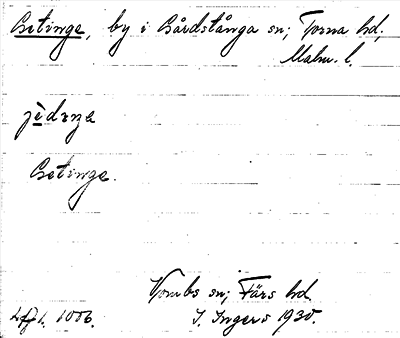 Getinge, by i Gårdstånga sn; Torna hd,
Malm. l.
jèdiŋa
Getinge.
Vombs sn; Färs hd
I. Ingers 1930.
1006.